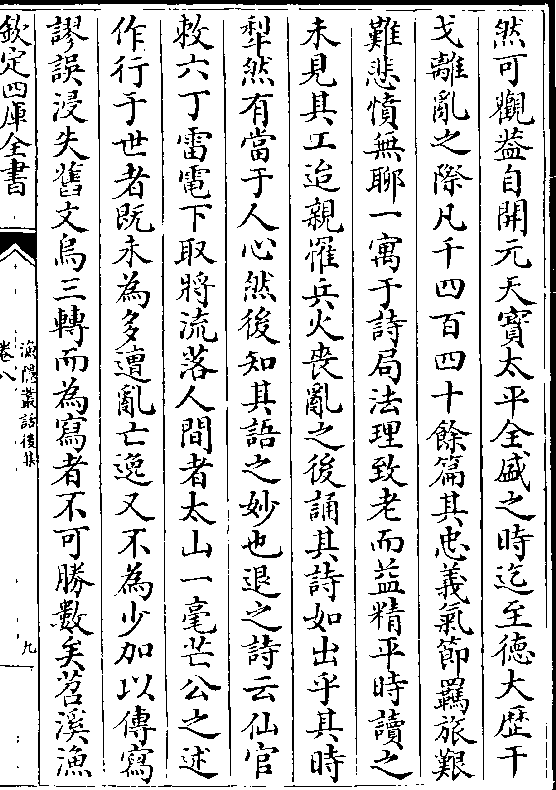 然可觀葢自開元天寳太平全盛之時迄至德大歴干
戈離亂之際凡千四百四十餘篇其忠義氣節羈旅艱
難悲憤無聊一寓于詩局法理致老而益精平時讀之
未見其工迨親罹兵火喪亂之後誦其詩如出乎其時
犁然有當于人心然後知其語之妙也退之詩云仙官
敕六丁雷電下取將流落人間者太山一毫芒公之述
作行于世者既未為多遭亂亡逸又不為少加以傳寫
謬誤浸失舊文烏三轉而為寫者不可勝數矣苕溪漁
欽定四庫全書
漁隠叢話後集
卷八
九